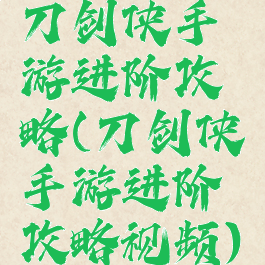 刀剑侠手
游进阶攻
略(刀剑侠
手游进阶
攻略视频)